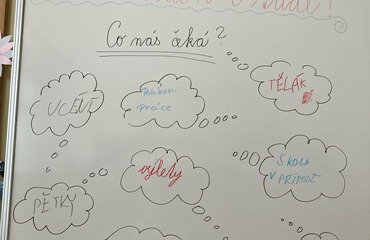 Co nás čeká?
UČENÍ
práce
TĚLÁK
PĚTKY
výlety
ŠKOLA
V PŘÍRODĚ